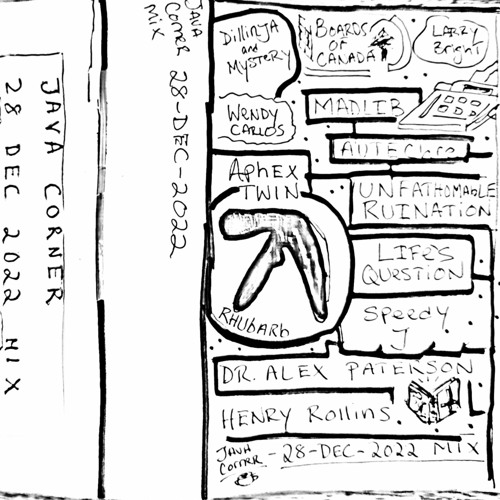 JAVA CORNER
28 DEC 2022 MIX
JAVA
CORNER
MIX
28-DEC-2022
DillinJA
and
MYSTERY
BOARDS
OF
CANADA
LARRY
Bright
WENDY
CARLOS
MADLIB
AUTECHRE
APHEX
TWIN
UNFATHOMABLE
RUINATION
LIFE'S
QUESTION
RHUBARb
SPEEDY
J
DR. ALEX PATERSON
HENRY Rollins.
JAVA
CORNER
-28-DEC-2022 MIX